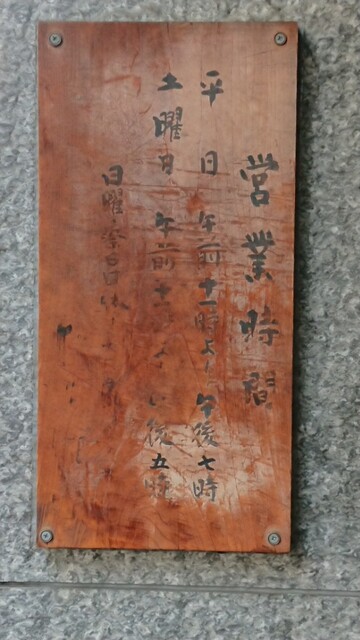 営業時間
平日 午前十一時より 午後七時
土曜日 午前十一 より 午後五時
日曜祭日休